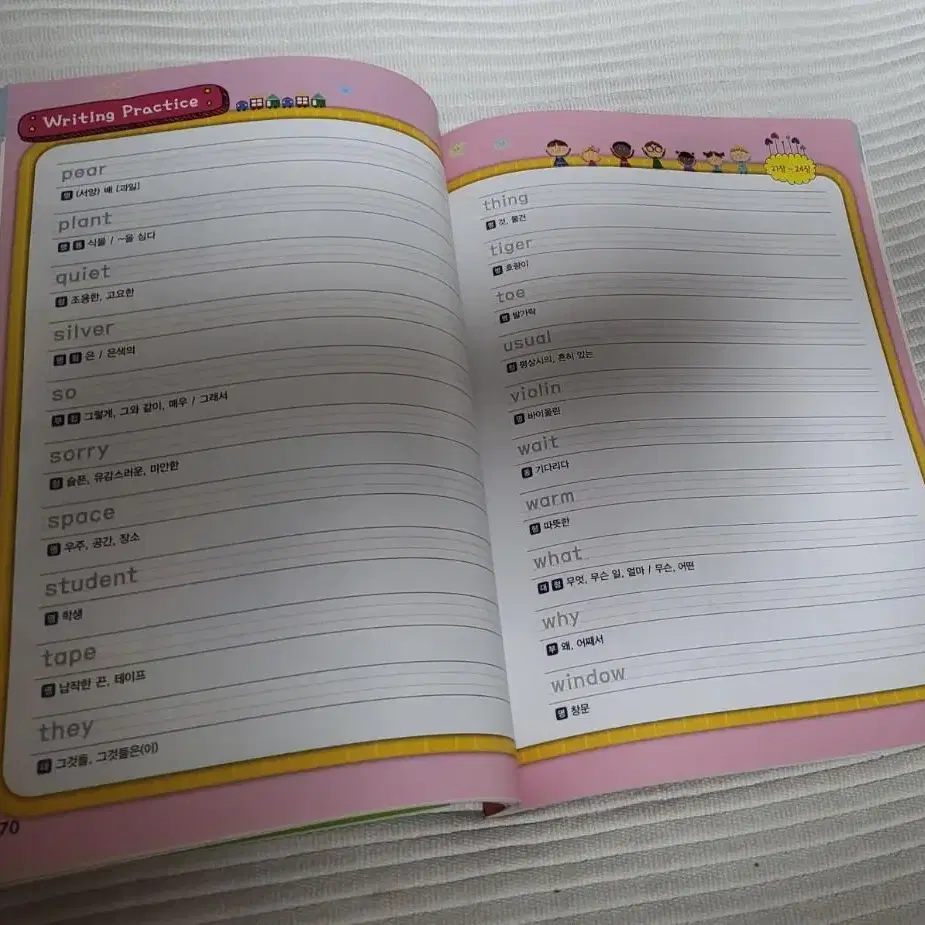 Writing Practice
pear
명 (서양) 배 [과일]
plant
명 동 식물 / ~을 심다
quiet
형 조용한, 고요한
silver
명 형 은 / 은색의
so
부 접 그렇게, 그와 같이, 매우 / 그래서
sorry
형 슬픈, 유감스러운, 미안한
space
명 우주, 공간, 장소
student
명 학생
tape
명 납작한 끈, 테이프
they
대 그것들, 그것들은(이)
70
21장 ~ 24장
thing
명 것, 물건
tiger
명 호랑이
toe
명 발가락
usual
형 평상시의, 흔히 있는
violin
명 바이올린
wait
동 기다리다
warm
형 따뜻한
what
대 형 무엇, 무슨 일, 얼마 / 무슨, 어떤
why
부 왜, 어째서
window
명 창문